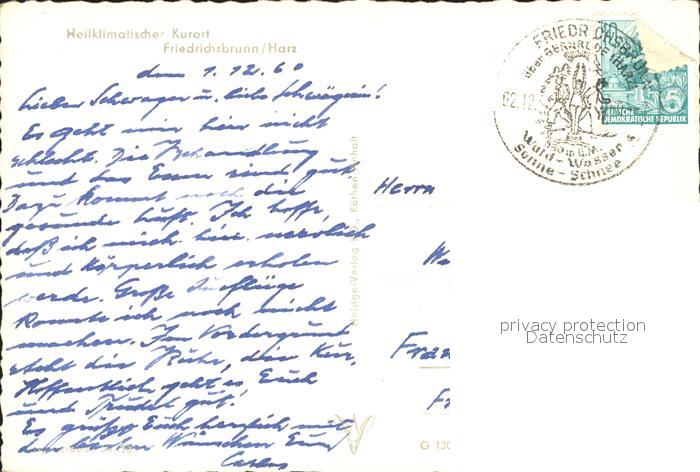 Heilklimatischer Kurort
Friedrichsbrunn/Harz
den 1.12.60
Lieber Schwager u. liebe Schwägerin!
Es geht mir hier nicht
schlecht. Die Behandlung
und das Essen sind gut
Dazu kommt noch die
gesunde Luft. Ich hoffe,
daß ich mich hier nervlich
und körperlich erholen
werde. Große Ausflüge
konnte ich noch nicht
machen. Im Vordergrund
steht die Ruhe, die Kur.
Hoffentlich geht es Euch
und Trudel gut.
Es grüßt Euch herzlich mit
den besten Wünschen Euer
Heldge-Verlag Köthen
Herrn
We
Fran
Fr
G 130
FRIEDRICHSBRUNN
über BERNRODE (HARZ)
02.12
580 m ü.M.
Wald - Wasser
Sonne - Schnee
DEUTSCHE
DEMOKRATISCHE REPUBLIK
5
privacy protection
Datenschutz